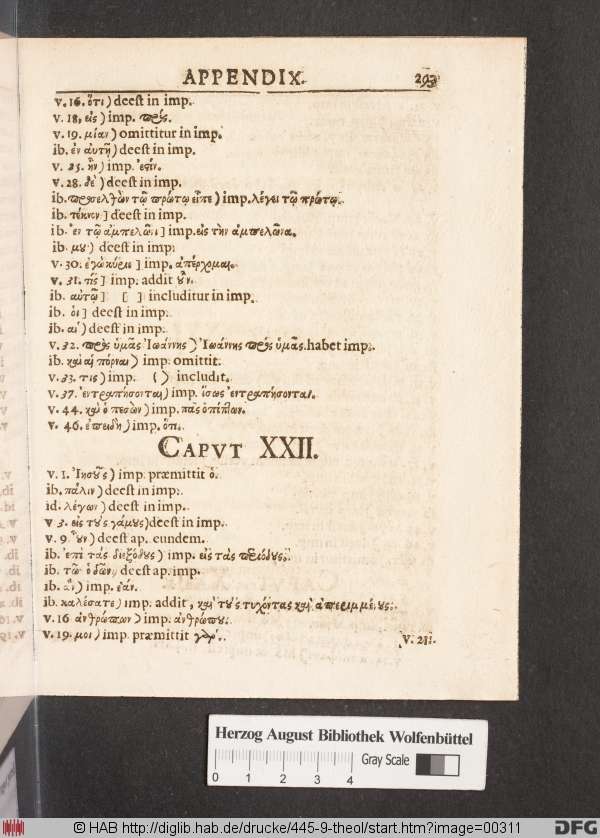 APPENDIX. 293
v. 16. ὅτι) deest in imp.
v. 18, εἰς) imp. πρός.
v. 19. μίαν) omittitur in imp.
ib. ἐν αὐτῇ) deest in imp.
v. 25. ἦν) imp. ἐςίν.
v. 28. δὲ) deest in imp.
ib. προσελθὼν τῷ πρώτῳ εἶπε) imp. λέγει τῷ πρώτῳ.
ib. τέκνον] deest in imp.
ib. ἐν τῷ ἀμπελῶνι] imp. εἰς τὴν ἀμπελῶνα.
ib. μȣ) deest in imp.
v. 30. ἐγὼ κύριε] imp. ἀπέρχομαι.
v. 31. τίς] imp. addit ȣ̓͂ν.
ib. αὐτῷ] [ ] includitur in imp.
ib. οἱ] deest in imp.
ib. αἱ) deest in imp.
v. 32. πρὸς ὑμᾶς Ἰωάννης) Ἰωάννης πρὸς ὑμᾶς. habet imp.
ib. καὶ αἱ πόρναι) imp. omittit.
v. 33. τις) imp. ( ) includit.
v. 37. ἐντραπήσονται) imp. ἴσως ἐντραπήσονται.
v. 44. καὶ ὁ πεσὼν) imp. πᾶς ὁ πίπτων.
v. 46. ἐπειδὴ) imp. ὅτι.
CAPVT XXII.
v. 1. Ἰησȣ͂ς) imp. præmittit ὁ.
ib. πάλιν) deest in imp.
id. λέγων) deest in imp.
v 3. εἰς τȣ̀ς γάμȣς) deest in imp.
v. 9 ȣ̓͂ν) deest ap. eundem.
ib. ἐπὶ τὰς διεξόδȣς) imp. εἰς τὰς
ib. τῶν ὁδῶν) deest ap. imp.
ib. ἂν) imp. ἐάν.
ib. καλέσατε) imp. addit, καὶ τȣ̀ς τυχόντας καὶ
v. 16 ἀνθρώπων) imp. ἀνθρώπȣ.
v. 19. μοι) imp. præmittit γὰρ. v. 21.
Herzog August Bibliothek Wolfenbüttel
Gray Scale
0 1 2 3 4
© HAB http://diglib.hab.de/drucke/445-9-theol/start.htm?image=00311
DFG